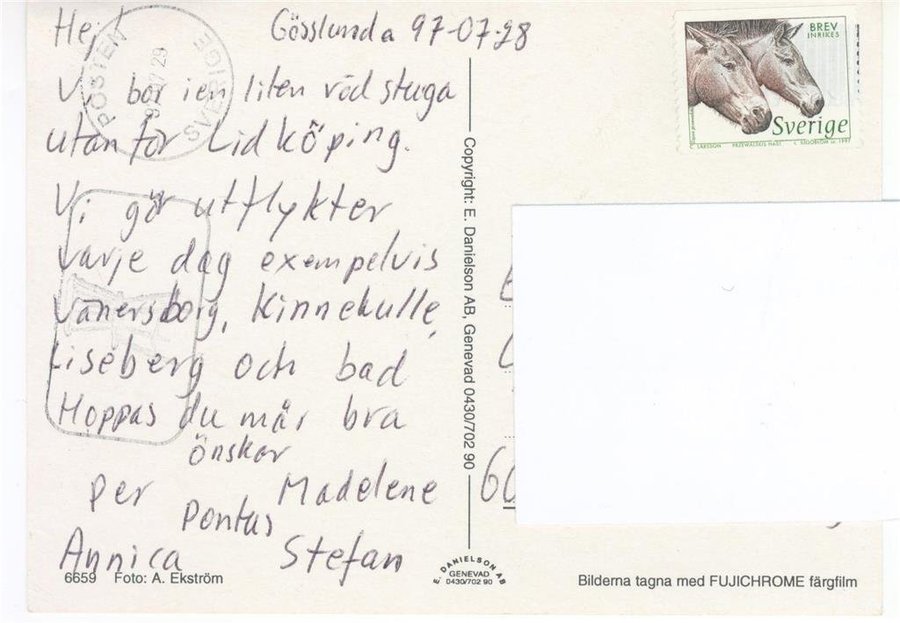 Hej! Gösslunda 97-07-28
Vi bor i en liten röd stuga
utanför Lidköping.
Vi gör utflykter
varje dag exempelvis
Vänersborg, Kinnekulle,
Liseberg och bad
Hoppas du mår bra
önskar
Per Madelene
Pontus
Annica Stefan
6659 Foto: A. Ekström
POSTEN
SVERIGE
Copyright: E. Danielson AB, Genevad 0430/702 90
E. DANIELSON AB
GENEVAD
0430/702 90
BREV
INRIKES
Sverige
Bilderna tagna med FUJICHROME färgfilm